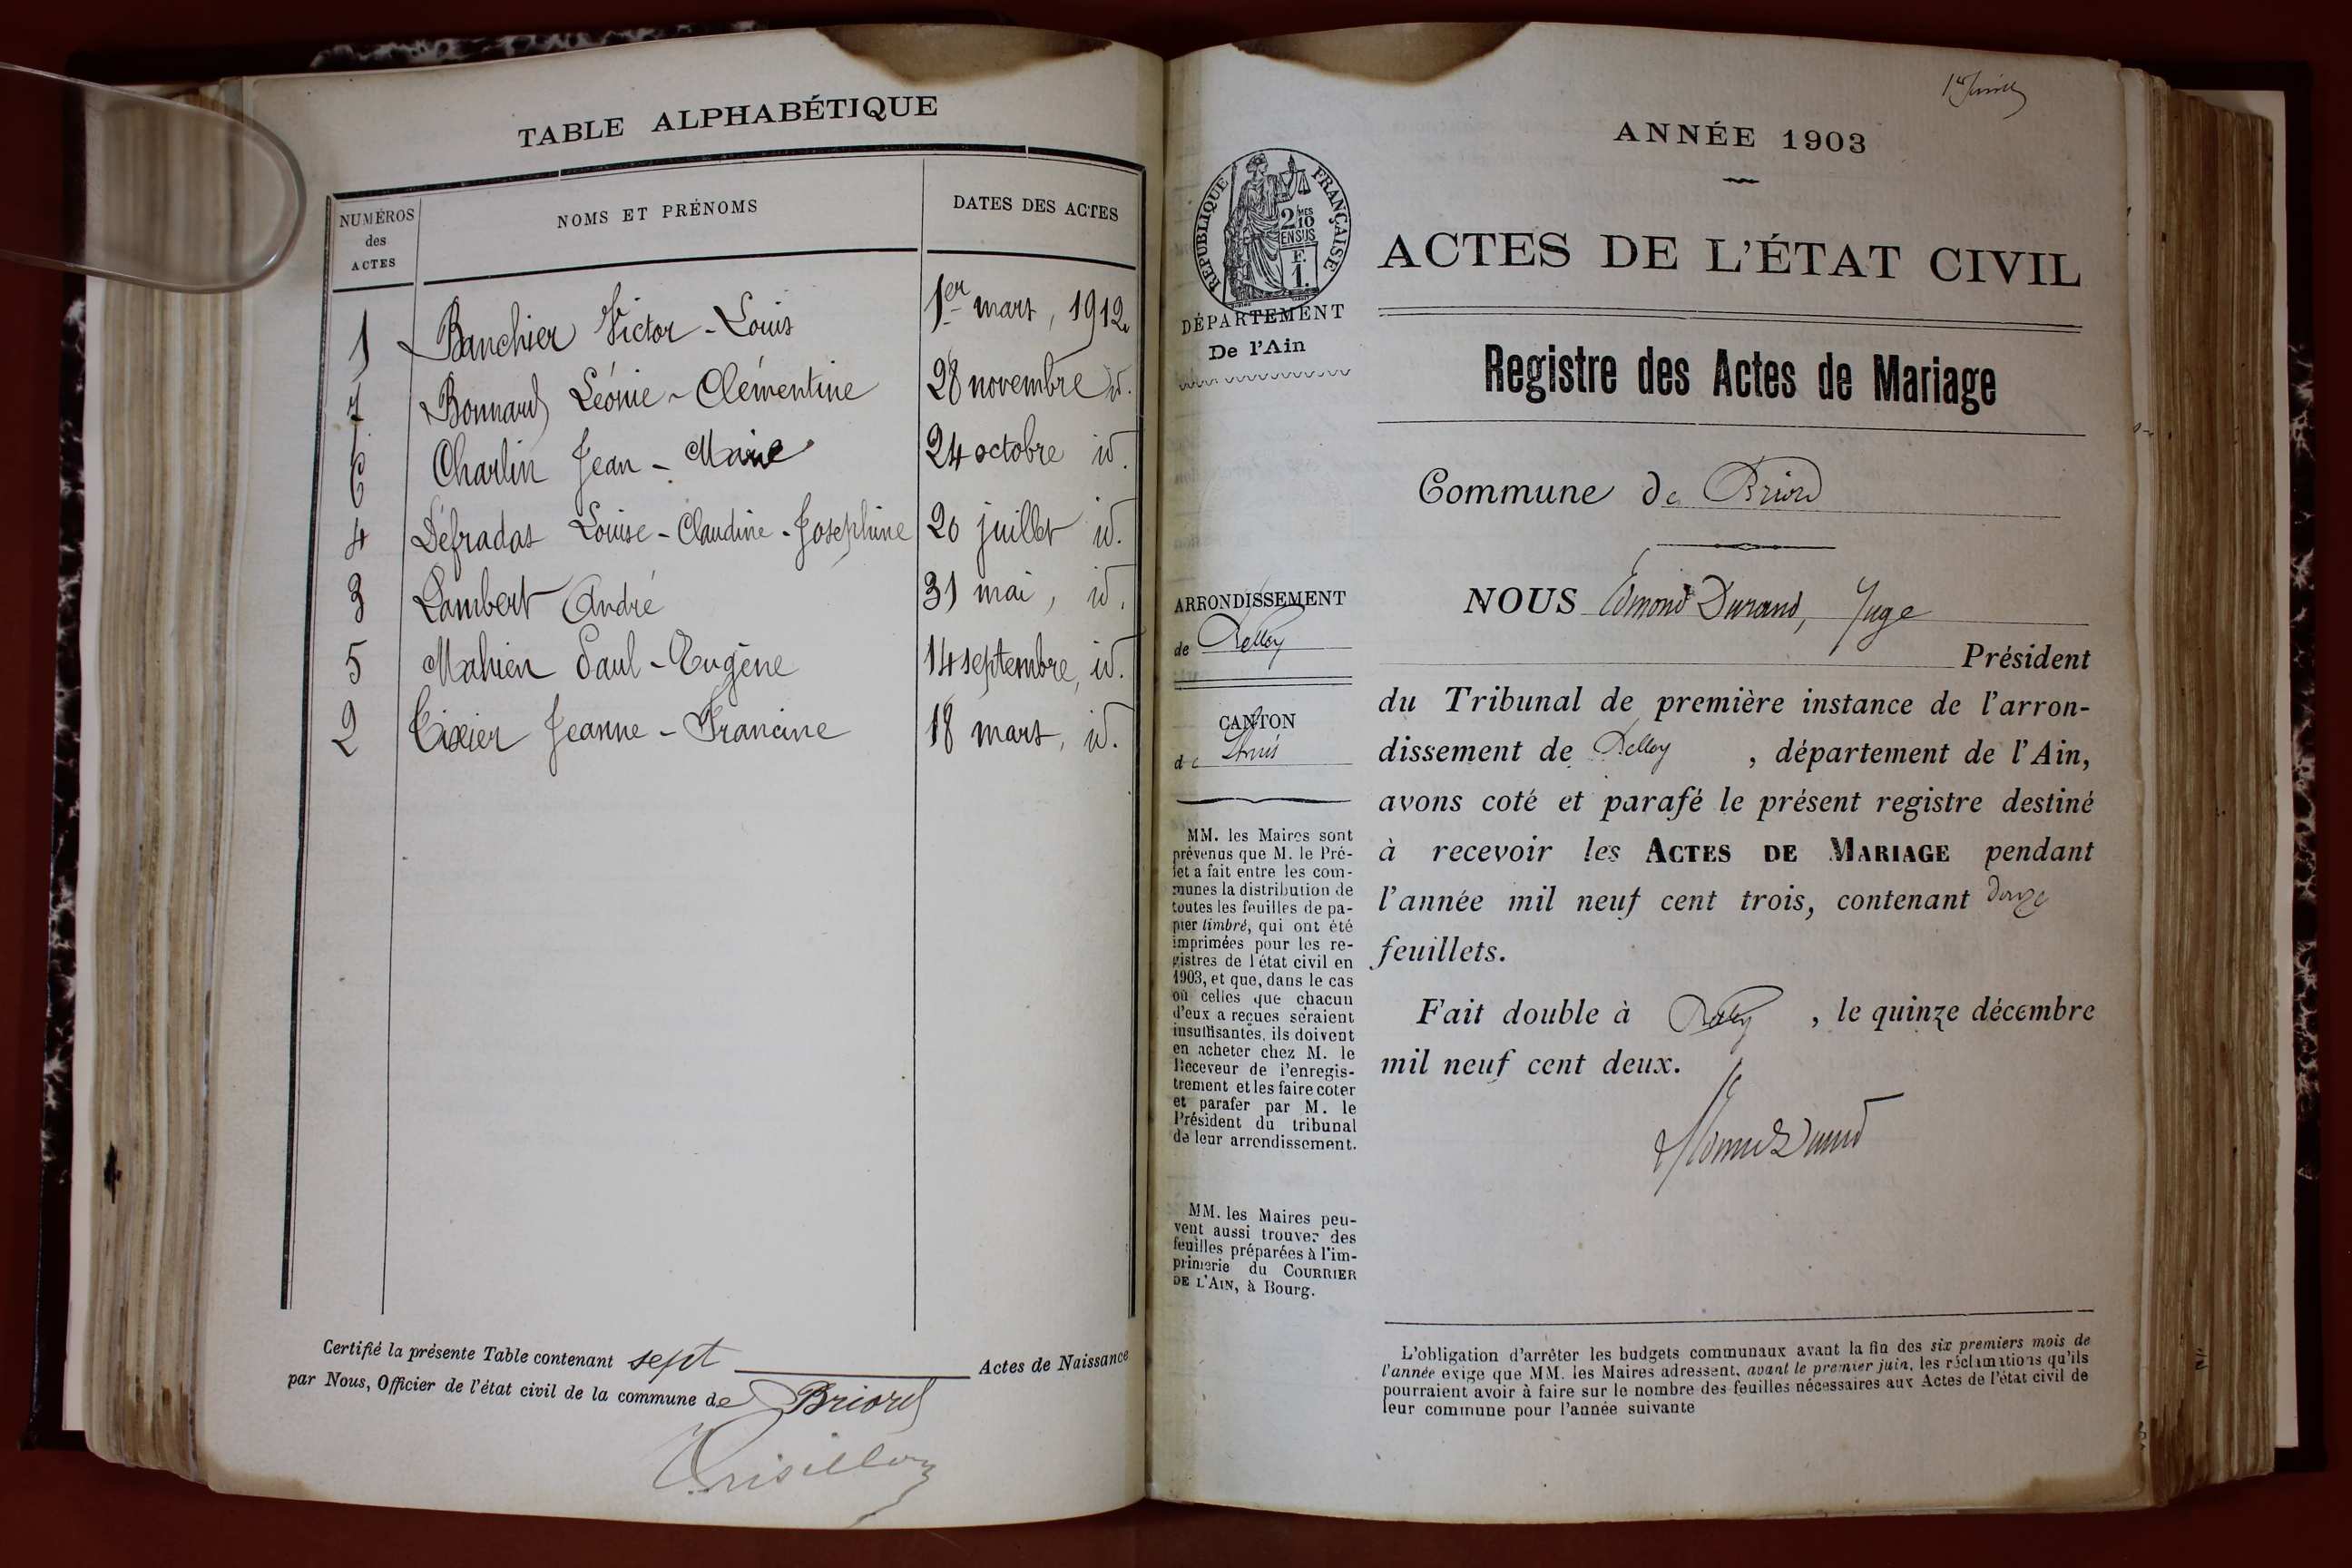 TABLE ALPHABÉTIQUE
NUMÉROS
des
ACTES
NOMS ET PRÉNOMS
DATES DES ACTES
1 Banchier Victor - Louis 1er mars, 1912.
7 Bonnard Léonie - Clémentine 28 novembre id.
6 Charlin Jean - Marie 24 octobre id.
4 Défradas Louise - Claudine - Josephine 20 juillet id.
3 Lambert André 31 mai, id.
5 Mahieu Paul - Eugène 14 septembre, id.
2 Tixier Jeanne - Francine 18 mars, id.
Certifié la présente Table contenant sept Actes de Naissance
par Nous, Officier de l'état civil de la commune de Briord
ANNÉE 1903
RÉPUBLIQUE FRANÇAISE
2 MES
10
EN SUS
F.
1.
DÉPARTEMENT
De l'Ain
ACTES DE L'ÉTAT CIVIL
Registre des Actes de Mariage
Commune de Briord
ARRONDISSEMENT
de Belley
CANTON
de Lhuis
MM. les Maires sont
prévenus que M. le Pré-
fet a fait entre les com-
munes la distribution de
toutes les feuilles de pa-
pier timbré, qui ont été
imprimées pour les re-
gistres de l'état civil en
1903, et que, dans le cas
où celles que chacun
d'eux a reçues seraient
insuffisantes, ils doivent
en acheter chez M. le
Receveur de l'enregis-
trement et les faire coter
et parafer par M. le
Président du tribunal
de leur arrondissement.
MM. les Maires peu-
vent aussi trouver des
feuilles préparées à l'im-
primerie du COURRIER
DE L'AIN, à Bourg.
NOUS Edmond Durand, Juge
Président
du Tribunal de première instance de l'arron-
dissement de Belley, département de l'Ain,
avons coté et parafé le présent registre destiné
à recevoir les ACTES DE MARIAGE pendant
l'année mil neuf cent trois, contenant douze
feuillets.
Fait double à Belley, le quinze décembre
mil neuf cent deux.
Edmond Durand
L'obligation d'arrêter les budgets communaux avant la fin des six premiers mois de
l'année exige que MM. les Maires adressent, avant le premier juin, les réclamations qu'ils
pourraient avoir à faire sur le nombre des feuilles nécessaires aux Actes de l'état civil de
leur commune pour l'année suivante